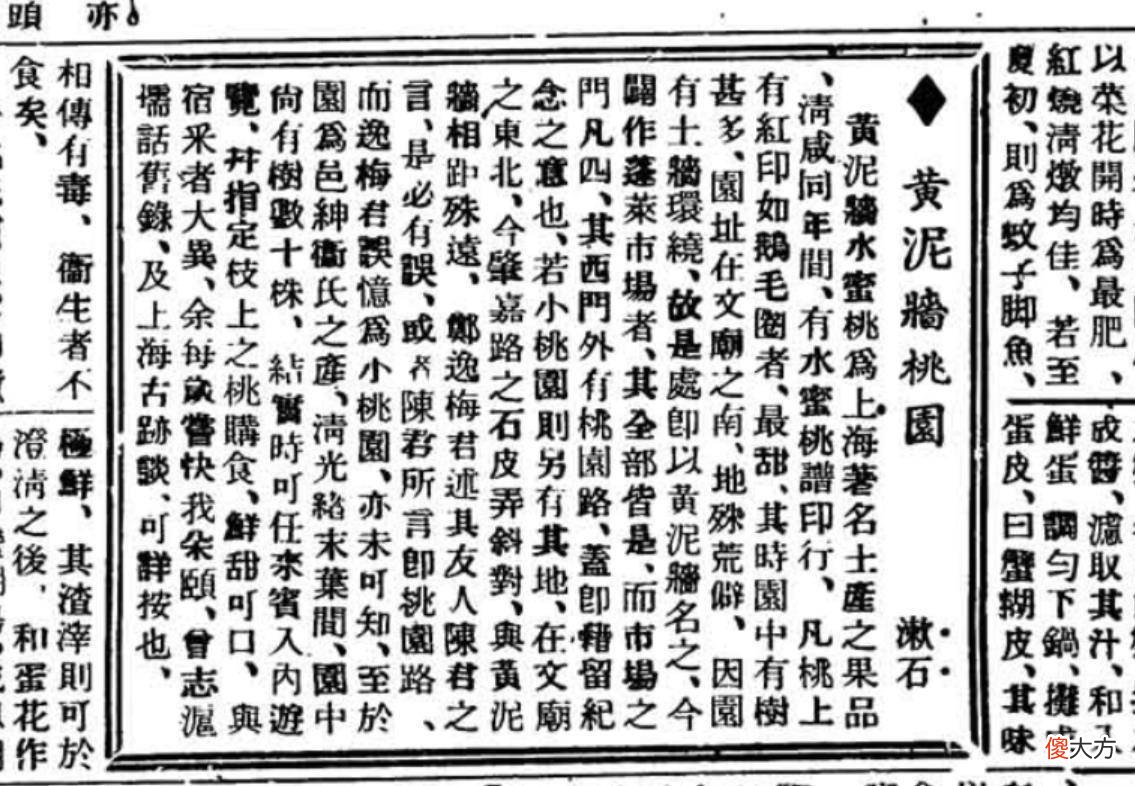 頭　亦
以菜花開時爲最肥、
紅燒淸燉均佳、若至
夏初、則爲蚊子脚魚、
成醬、濾取其汁、和
鮮蛋　調勻下鍋、攤
蛋皮、曰蟹糊皮、其味
◆黃泥牆桃園　漱石
黃泥牆水蜜桃爲上海著名土產之果品
、淸咸同年間、有水蜜桃譜印行、凡桃上
有紅印如鵝毛圈者、最甜、其時園中有樹
甚多、園址在文廟之南、地殊荒僻、因園
有土牆環繞、故是處卽以黃泥牆名之、今
闢作蓬萊市場者、其全部皆是、而市場之
門凡四、其西門外有桃園路、蓋卽藉留紀
念之意也、若小桃園則另有其地、在文廟
之東北、今肇嘉路之石皮弄斜對、與黃泥
牆相距殊遠、鄭逸梅君述其友人陳君之
言、是必有誤、或者陳君所言卽桃園路、
而逸梅君誤憶爲小桃園、亦未可知、至於
園爲邑紳衞氏之產、淸光緒末葉間、園中
尙有樹數十株、結實時可任來賓入內遊
覽、幷指定枝上之桃購食、鮮甜可口、與
宿采者大異、余每歲嘗快我朵頤、曾志滬
壖話舊錄、及上海古跡談、可詳按也、
相傳有毒、衞生者不
食矣、
極鮮、其渣滓則可於
澄淸之後、和蛋花作
傻大方